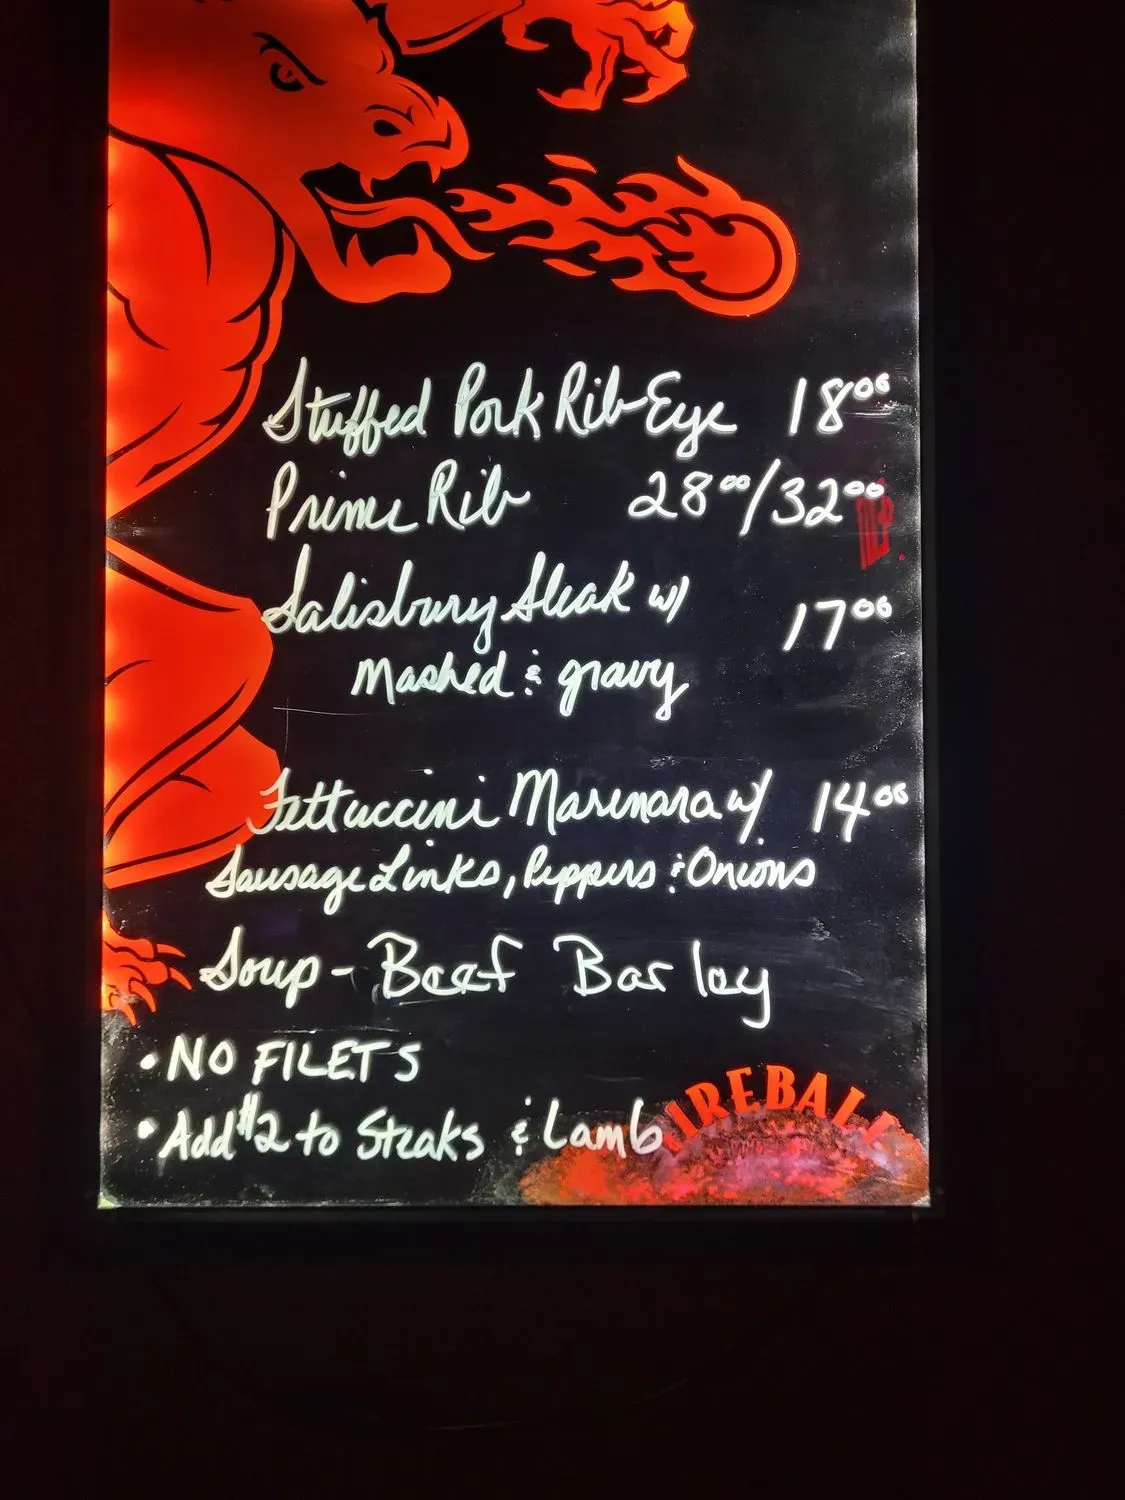 Stuffed Pork Rib-Eye 18.00
Prime Rib 28.00/32.00
Salisbury Steak w/ 17.00
Mashed & gravy
Fettuccini Marinara w/ 14.00
Sausage Links, Peppers & Onions
Soup - Beef Barley
• NO FILETS
• Add $2 to Steaks & Lamb
FIREBALL